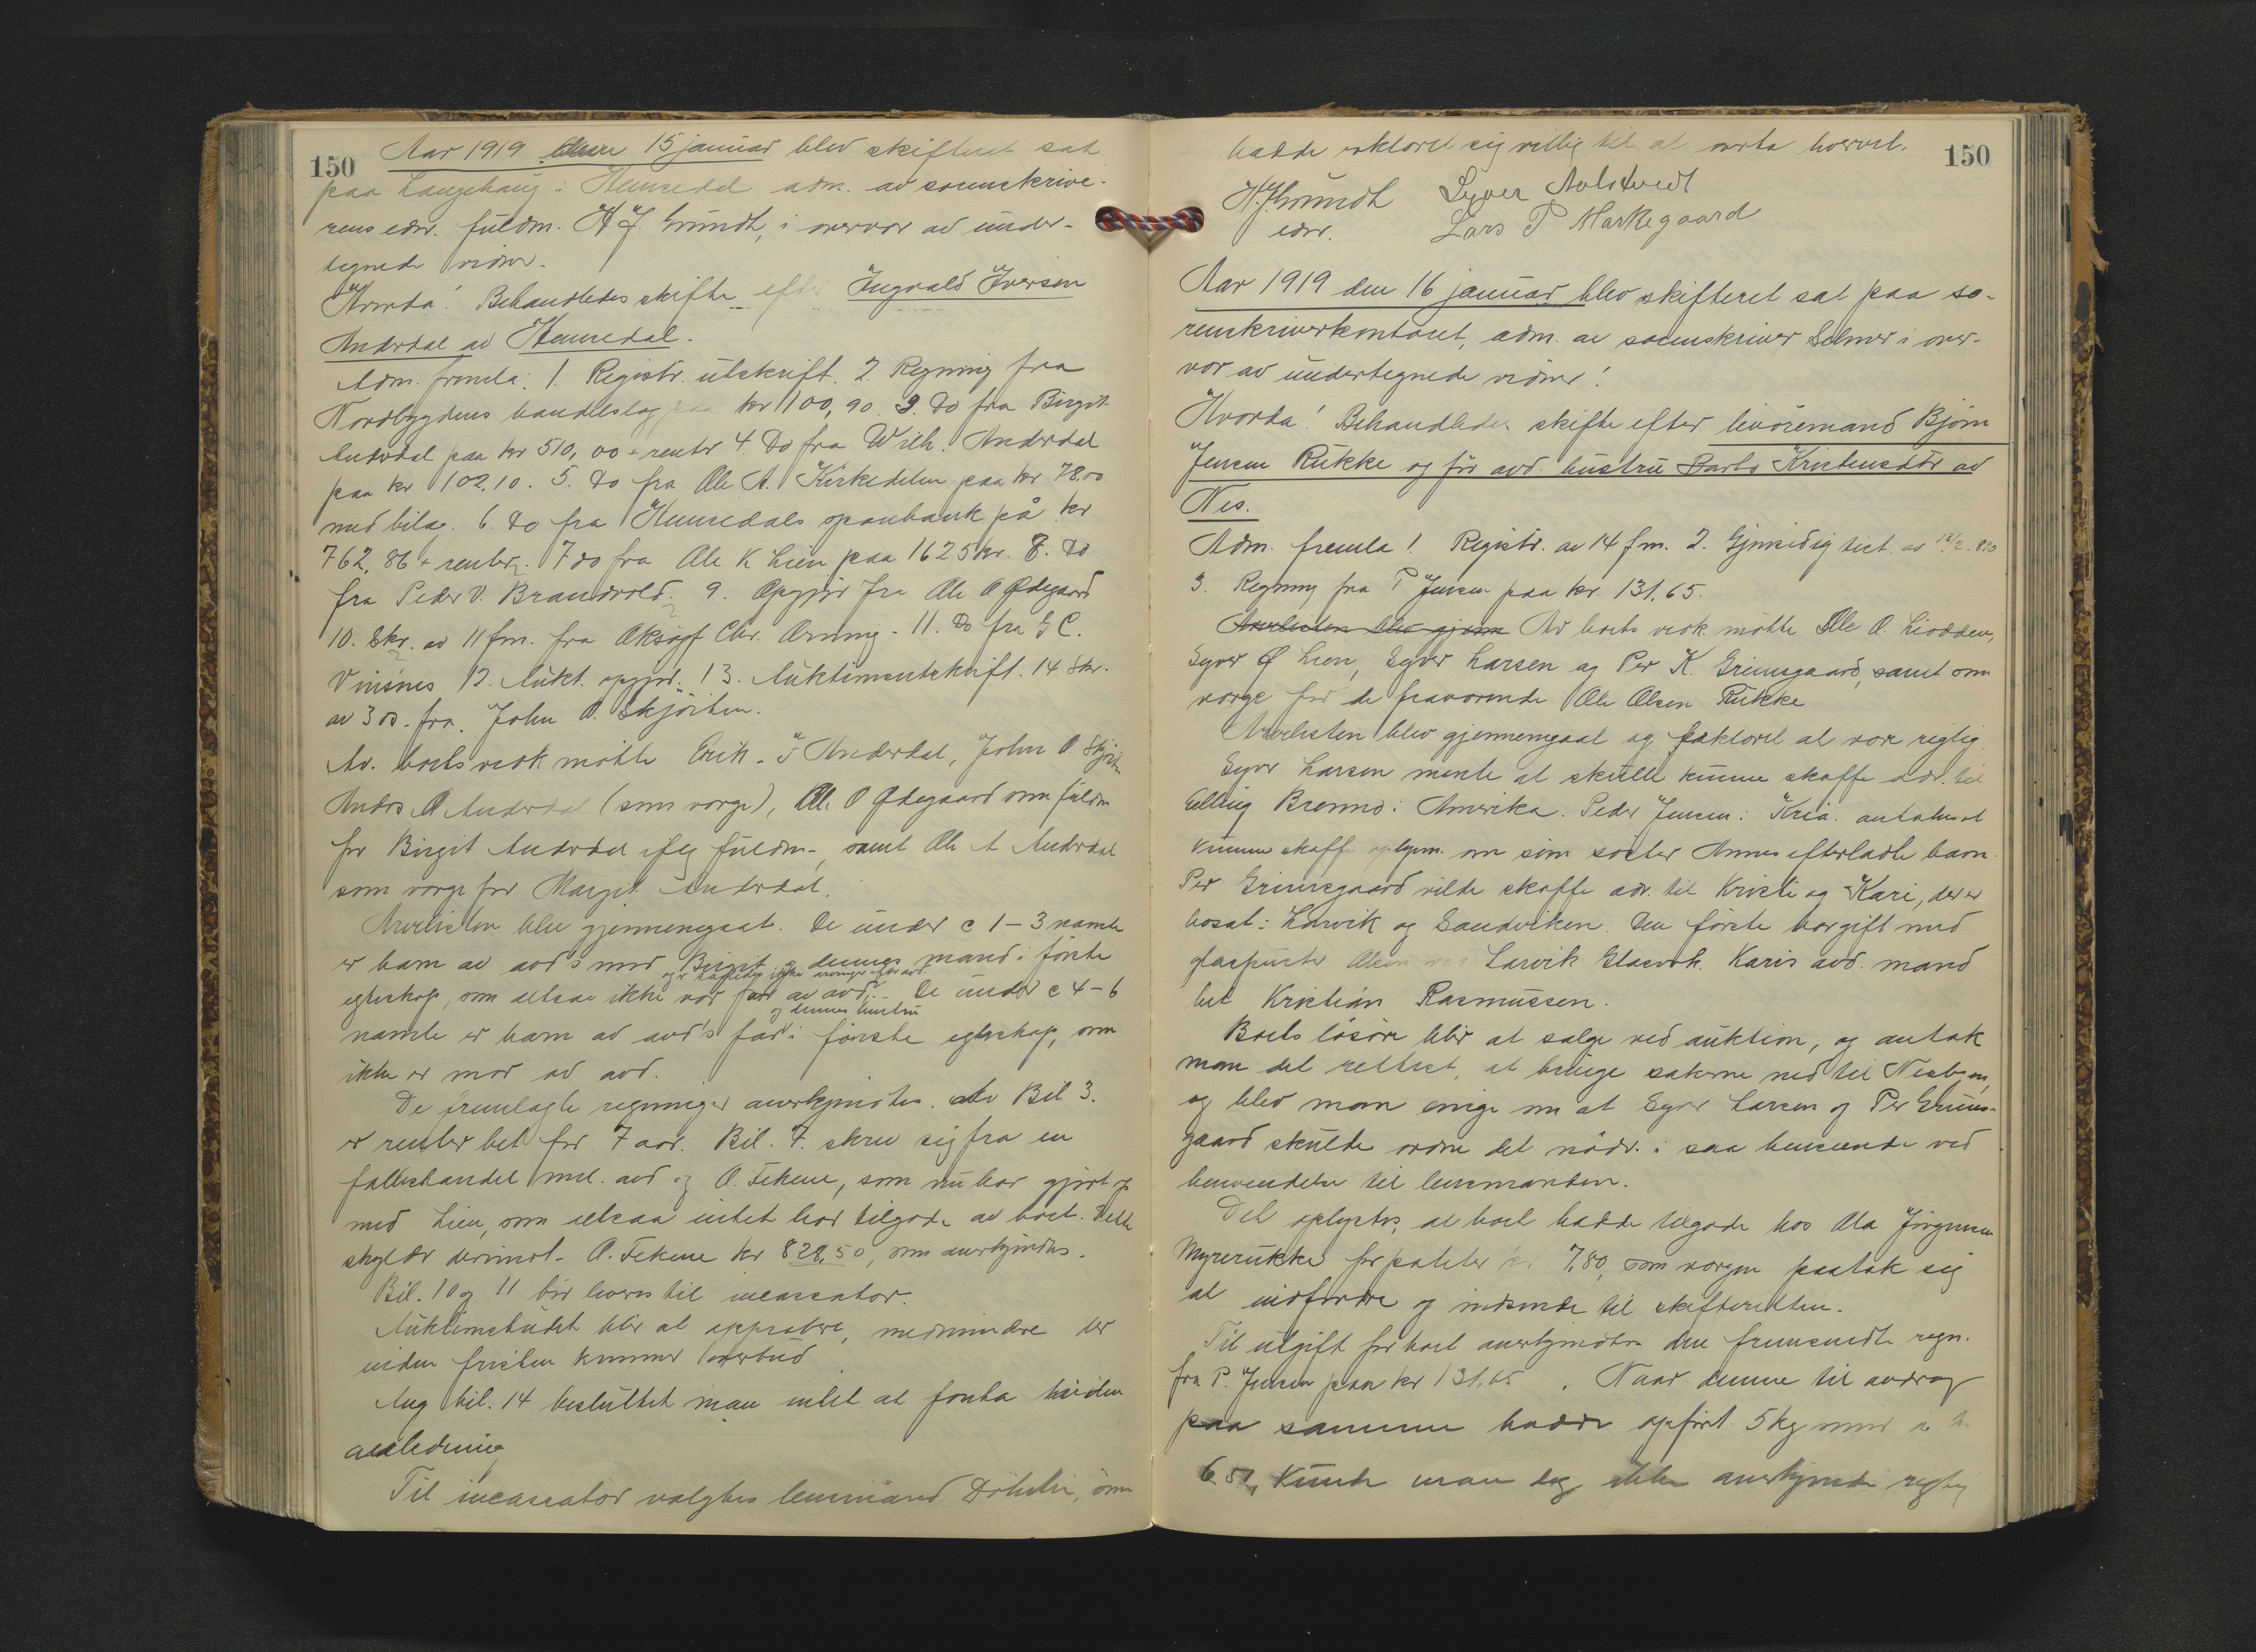 150
Aar 1919 den 15 januar blev skifteret sat
paa Langehaug i Hemsedal adm. av sorenskrive-
rens edsv. fuldm. H J. Grundt, i overvær av under-
tegnede vidner.
Hvorda! Behandledes skifte efter Ingvald Iversen
Anderdal av Hemsedal.
Adm. fremla: 1. Registr. utskrift. 2. Regning fra
Nordbygdens handelslag paa kr 100,90. 3. Do fra Birgit
Anderdal paa kr 510,00 + renter 4. Do fra Wilh. Anderdal
paa kr 102,10. 5. Do fra Ole A. Kirkedelen paa kr 78.00
med bilag. 6. Do fra Hemsedals sparebank på kr
762,86 + renter. 7 do fra Ole K Lien paa 1625 kr. 8. Do
fra Peder V. Brandvold. 9. Opgjør fra Ole O Ødegaard
10. Skr. av 11 fm. fra Oksapf Chr. 11. Do fra G C.
Vinsnes 12. Aukt. opgjør. 13. Auktionsutskrift. 14 Skr.
av 3 ds. fra John O. Skjøiten.
Av. boets vedk møtte Erik. I Anderdal, John O. Skjøiten
Anders O Anderdal (som verge), Ole O Ødegaard som fuldm
for Birgit Anderdal iflg fuldm., samt Ole A Anderdal
som verge for Margit Anderdal.
Arvelisten blev gjennemgaat. De under c 1-3 nævnte
er barn av avd's mor Birgit og dennes mand i første
og er saaledes ikke arvinger efter avd.
egteskap, som altsaa ikke var far av avd. De under c 4-6
og dennes hustru
nævnte er barn av avd's far i første egteskap, som
ikke er mor av avd.
De fremlagte regninger anerkjendtes. Av Bil 3.
er renter bet for 7 aar. Bil. 7. skrev sig fra en
fælleshandel mel. avd og O. Fekene, som nu har gjort op
med Lien, som altsaa intet har tilgode av boet. Dette
skylder derimot O. Fekene kr 828,50, som anerkjendtes.
Bil. 10 og 11 bør leveres til incassator.
Auktionsbudet blir at approbere, medmindre der
inden fristen kommer overbud
Ang bil. 14 besluttet man intet at foreta i den
anledning
Til incassator valgtes lensmand , som
150
hadde erklæret sig villig til at motta hvervet.
H.J.Grundt Syver Aalstveit
edsv. Lars P Markegaard
Aar 1919 den 16 januar blev skifteret sat paa so-
renskriverkontoret, adm. av sorenskriver Selmer i over-
vær av undertegnede vidner!
Hvorda! Behandledes skifte efter livøremand Bjørn
Jensen Rukke og før avd. hustru Barbo Kristensdtr av
Nes.
Adm. fremla 1. Registr. av 14 fm. 2. Gjensidig test. av 13/2.890
3. Regning fra P Jensen paa kr. 131.65.
Arvelisten blev gjenn Av boets vedk. møtte Ole O. Liodden,
Syver Ø Lien, Syver Larsen og Per K. Grimsgaard, samt som
verge for de fraværende Ole Olsen Rukke
Arvelisten blev gjennemgaat og erklæret at være rigtig.
Syver Larsen mente at skulle kunne skaffe adr. til
Elling Brenno i Amerika. Peder Jensen i Kria. antokes at
kunne skaffe oplysn. om sin søster Annes efterladte barn.
Per Grimsgaard vilde skaffe adr. til Kristi og Kari, der er
bosat i Larvik og Sandviken. Den første var gift med
glaspuster Olsen ved Larvik Glasverk. Karis avd. mand
het Kristian Rasmussen.
Boets løsøre blir at sælge ved auktion, og antok
man det rettest, at bringe sakerne ned til Nesbyen,
og blev man enige om at Syver Larsen og Per Grims-
gaard skulde ordne det nødv. i saa henseende ved
henvendelse til lensmanden.
Det oplystes, at boet hadde tilgode hos Ola Jørgensen
Myrerukke for poteter kr 7,80, som vergen paatok sig
at indfordre og indsende til skifteretten.
Til utgift for boet anerkjendtes den fremsendte regn.
fra P. Jensen paa kr 131,65. Naar denne til avdrag
paa samme hadde opført 5 kg smør a kr
6.50, kunde man dog ikke anerkjende